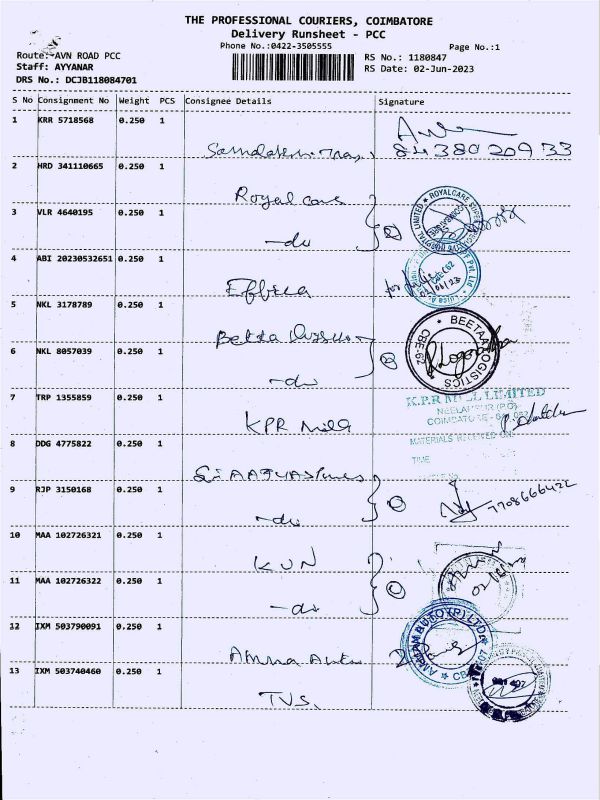 THE PROFESSIONAL COURIERS, COIMBATORE
Delivery Runsheet - PCC
Phone No.:0422-3505555
Page No.:1
Route:-AVN ROAD PCC
RS No.: 1180847
Staff: AYYANAR
RS Date: 02-Jun-2023
DRS No.: DCJB118084701
S No Consignment No Weight PCS Consignee Details Signature
1 KRR 5718568 0.250 1
8438020933
2 HRD 341110665 0.250 1
Royal care
3 VLR 4640195 0.250 1
-do
4 ABI 20230532651 0.250 1
Effica
5 NKL 3178789 0.250 1
BEETAA LOGISTICS
CBE-62
6 NKL 8057039 0.250 1
-do
7 TRP 1355859 0.250 1
K.P.R MILL LIMITED
NEELAMBUR (P.O)
COIMBATORE - 641 062
MATERIALS RECEIVED ON
TIME
KPR Mill
8 DDG 4775822 0.250 1
9 RJP 3150168 0.250 1
7708666422
-do
10 MAA 102726321 0.250 1
KUN
11 MAA 102726322 0.250 1
-do
12 IXM 503790091 0.250 1
Amma Auto
13 IXM 503740460 0.250 1
TVS.